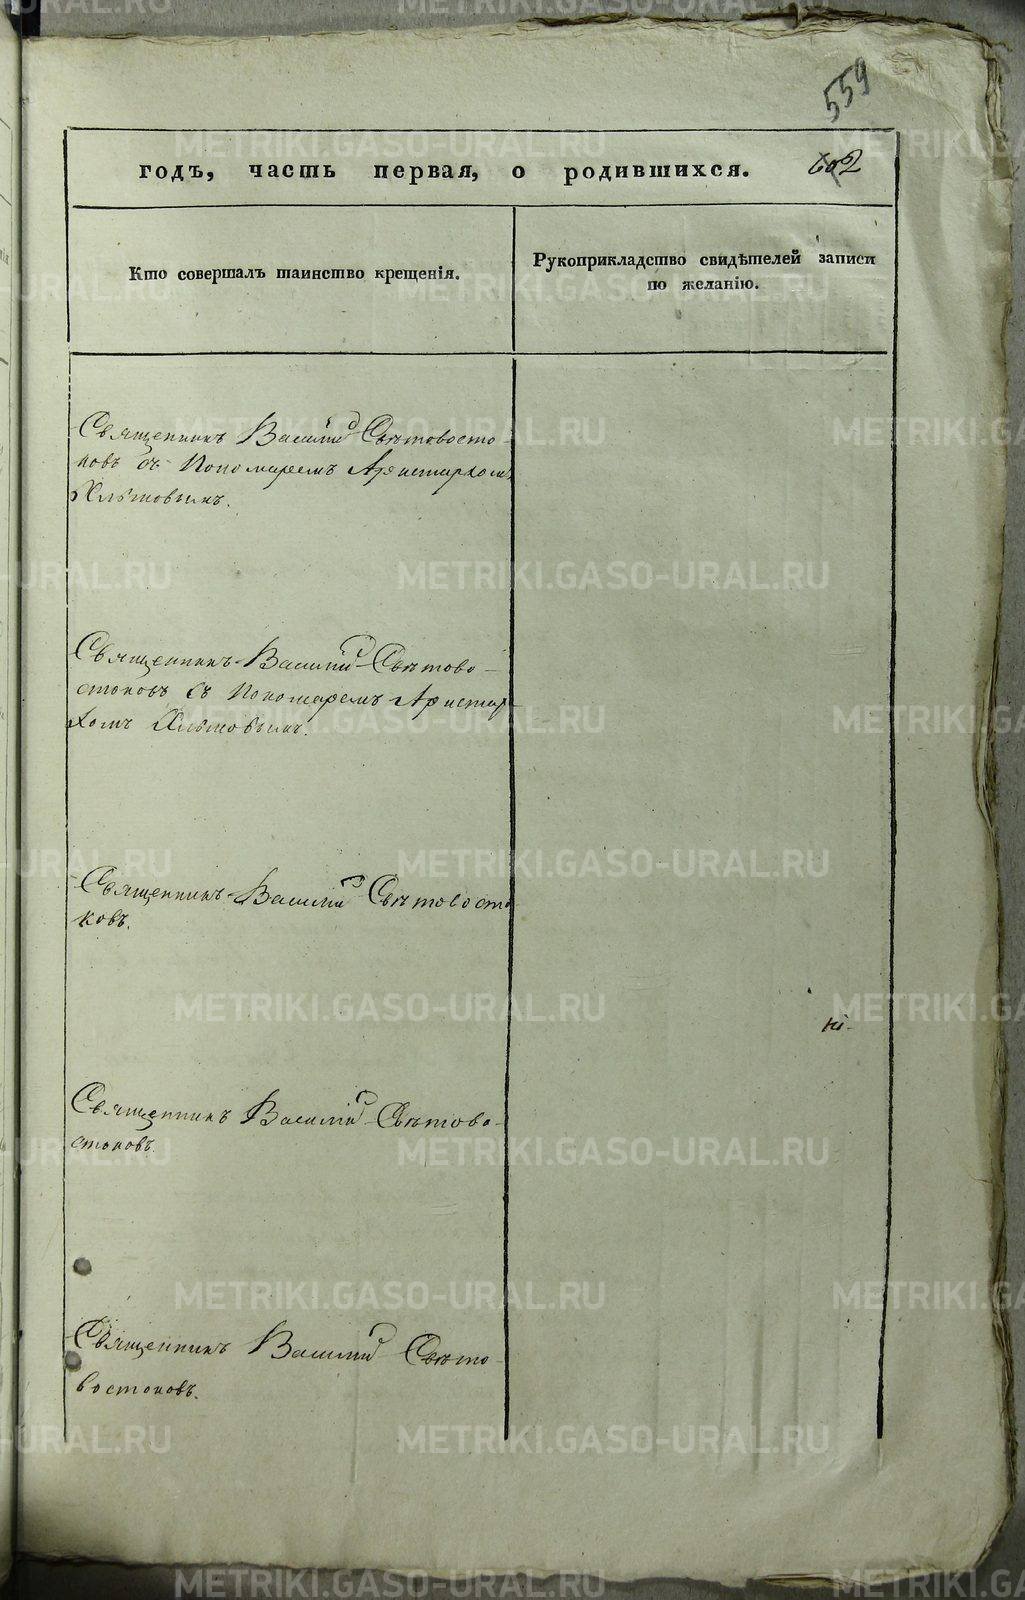 559
годъ, часть первая, о родившихся.
602
Кто совершалъ таинство крещенія.
Рукоприкладство свидѣтелей записи
по желанію.
Священникъ Василий Свѣтовосто-
ковъ съ Пономаремъ Аристархомъ
Хлѣтовымъ.
Священникъ Василий Свѣтово-
стоковъ съ Пономаремъ Аристар-
хомъ Хлѣтовымъ.
Священникъ Василий Свѣтовосто-
ковъ.
Священникъ Василий Свѣтово-
стоковъ.
Священникъ Василий Свѣто-
востоковъ.
METRIKI.GASO-URAL.RU